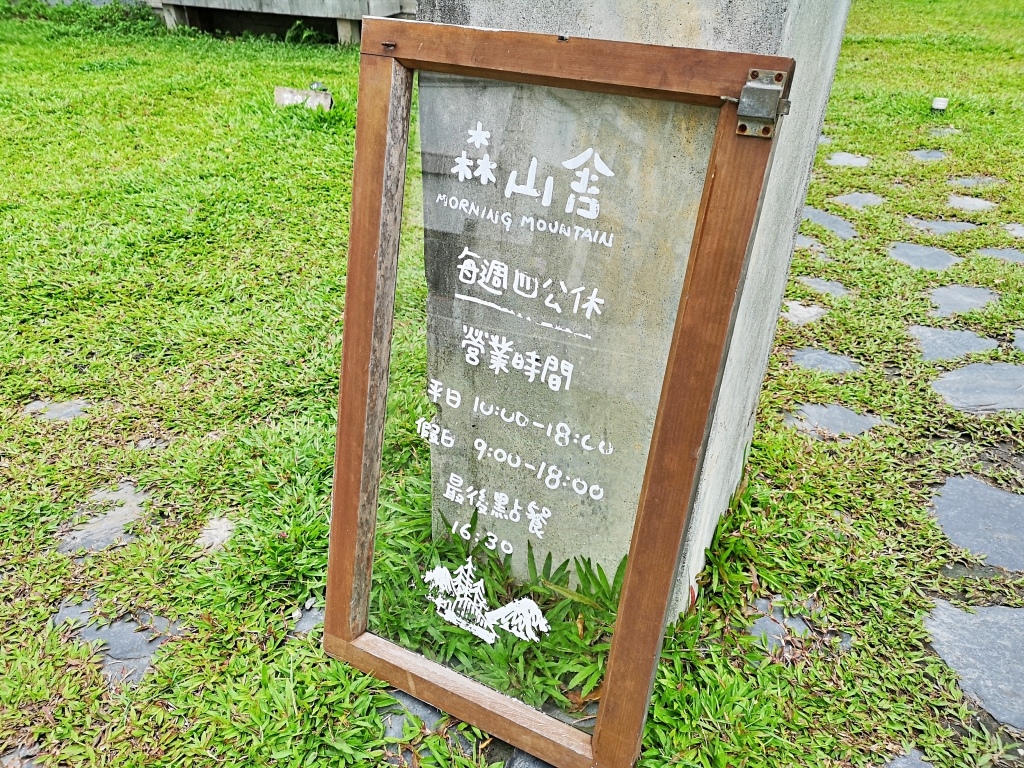 森山舍
MORNING MOUNTAIN
每週四公休
營業時間
平日 10:00-18:00
假日 9:00-18:00
最後點餐
16:30